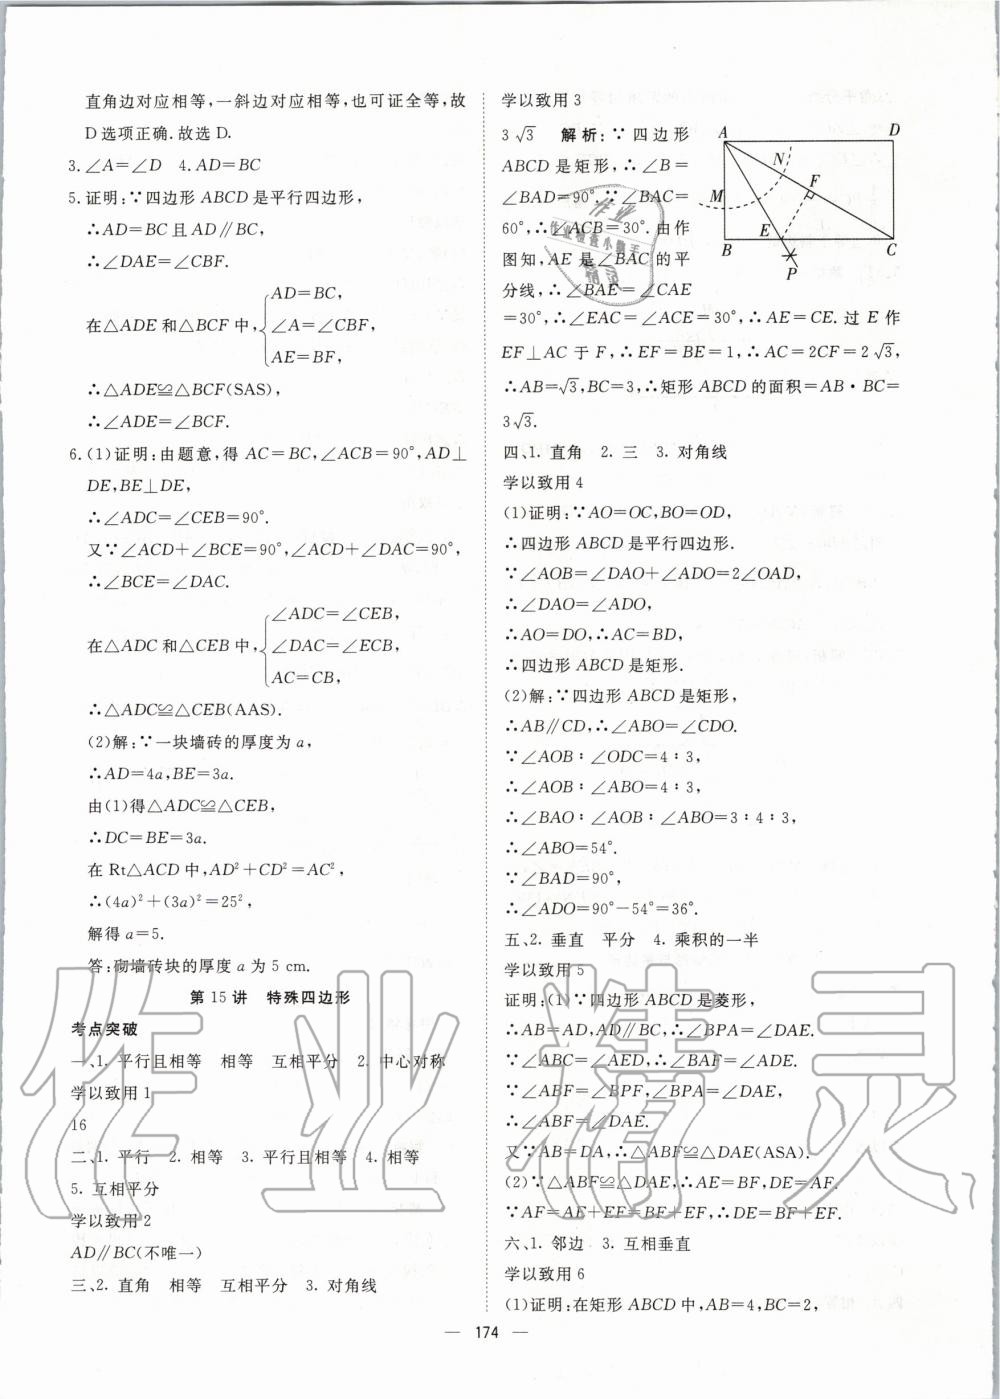 直角边对应相等,一斜边对应相等,也可证全等,故
D选项正确.故选 D.
3.∠A=∠D 4.AD=BC
5.证明:∵四边形 ABCD 是平行四边形,
∴AD=BC 且 AD∥BC,
∴∠DAE=∠CBF.
在△ADE 和△BCF 中,{AD=BC,
∠A=∠CBF,
AE=BF,
∴△ADE≌△BCF(SAS),
∴∠ADE=∠BCF.
6.(1)证明:由题意,得 AC=BC,∠ACB=90°,AD⊥
DE,BE⊥DE,
∴∠ADC=∠CEB=90°.
又∵∠ACD+∠BCE=90°,∠ACD+∠DAC=90°,
∴∠BCE=∠DAC.
在△ADC 和△CEB 中,{∠ADC=∠CEB,
∠DAC=∠ECB,
AC=CB,
∴△ADC≌△CEB(AAS).
(2)解:∵一块墙砖的厚度为 a,
∴AD=4a,BE=3a.
由(1)得△ADC≌△CEB,
∴DC=BE=3a.
在 Rt△ACD 中,AD²+CD²=AC²,
∴(4a)²+(3a)²=25²,
解得 a=5.
答:砌墙砖块的厚度 a 为 5 cm.
第 15 讲 特殊四边形
考点突破
一、1. 平行且相等 相等 互相平分 2. 中心对称
学以致用 1
16
二、1. 平行 2. 相等 3. 平行且相等 4. 相等
5. 互相平分
学以致用 2
AD∥BC(不唯一)
三、2. 直角 相等 互相平分 3. 对角线
学以致用 3
3√3 解析:∵四边形
ABCD 是矩形,∴∠B=
∠BAD=90°.∵∠BAC=
60°,∴∠ACB=30°.由作
图知,AE 是∠BAC 的平
分线,∴∠BAE=∠CAE
=30°,∴∠EAC=∠ACE=30°,∴AE=CE. 过 E 作
EF⊥AC 于 F,∴EF=BE=1,∴AC=2CF=2√3,
∴AB=√3,BC=3,∴矩形 ABCD 的面积=AB·BC=
3√3.
A
D
N
F
M
E
B
C
P
四、1. 直角 2. 三 3. 对角线
学以致用 4
(1)证明:∵AO=OC,BO=OD,
∴四边形 ABCD 是平行四边形.
∵∠AOB=∠DAO+∠ADO=2∠OAD,
∴∠DAO=∠ADO,
∴AO=DO,∴AC=BD,
∴四边形 ABCD 是矩形.
(2)解:∵四边形 ABCD 是矩形,
∴AB∥CD,∴∠ABO=∠CDO.
∵∠AOB∶∠ODC=4∶3,
∴∠AOB∶∠ABO=4∶3,
∴∠BAO∶∠AOB∶∠ABO=3∶4∶3,
∴∠ABO=54°.
∵∠BAD=90°,
∴∠ADO=90°−54°=36°.
五、2. 垂直 平分 4. 乘积的一半
学以致用 5
证明:(1)∵四边形 ABCD 是菱形,
∴AB=AD,AD∥BC,∴∠BPA=∠DAE.
∵∠ABC=∠AED,∴∠BAF=∠ADE.
∵∠ABF=∠BPF,∠BPA=∠DAE,
∴∠ABF=∠DAE.
又∵AB=DA,∴△ABF≌△DAE(ASA).
(2)∵△ABF≌△DAE,∴AE=BF,DE=AF.
∵AF=AE+EF=BF+EF,∴DE=BF+EF.
六、1. 邻边 3. 互相垂直
学以致用 6
(1)证明:在矩形 ABCD 中,AB=4,BC=2,
— 174 —
作业精灵
作业
作业检查小帮手
精灵